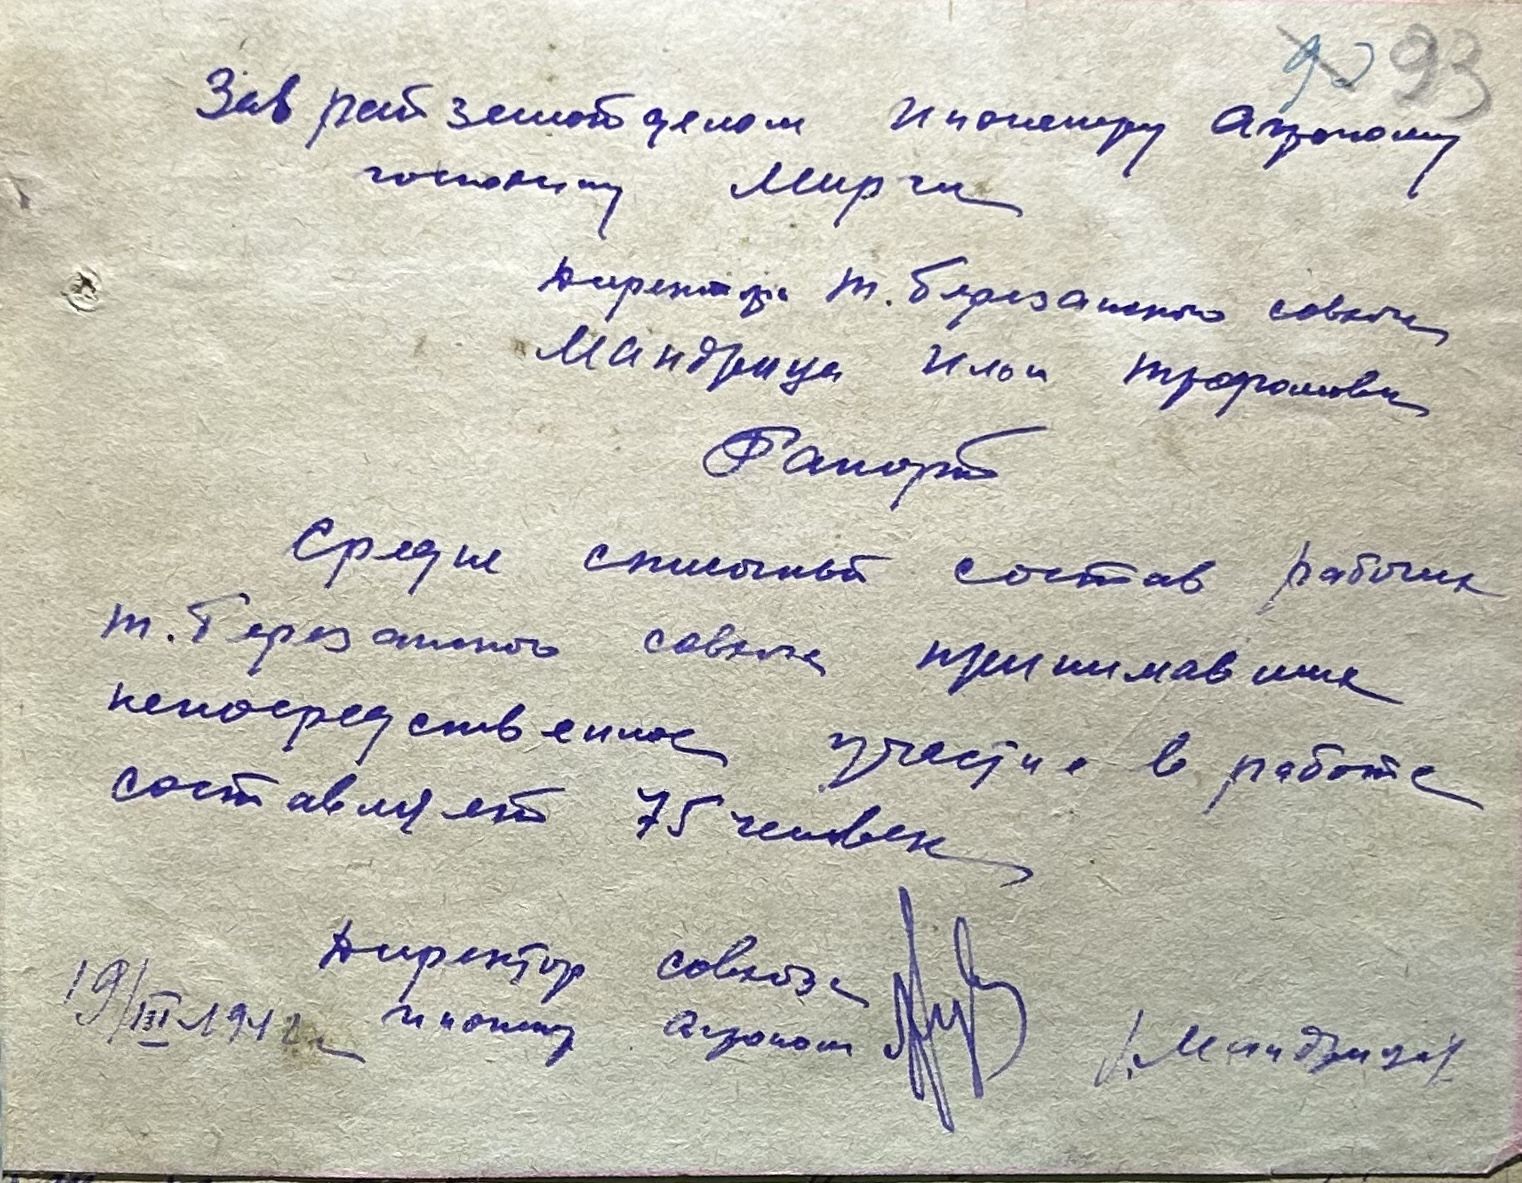 93
Зав райземотделом Инженеру Агроному
господину Мирчи
Директора т. Березанского совхоза
Мандрица Ильи Трофимови
Рапорт
Средне списочный состав рабочих
т. Березанского совхоза принимавших
непосредственное участие в работе
составляет 75 человек
Директор совхоза
19/III-1942 Инженер Агроном /Мандрица/